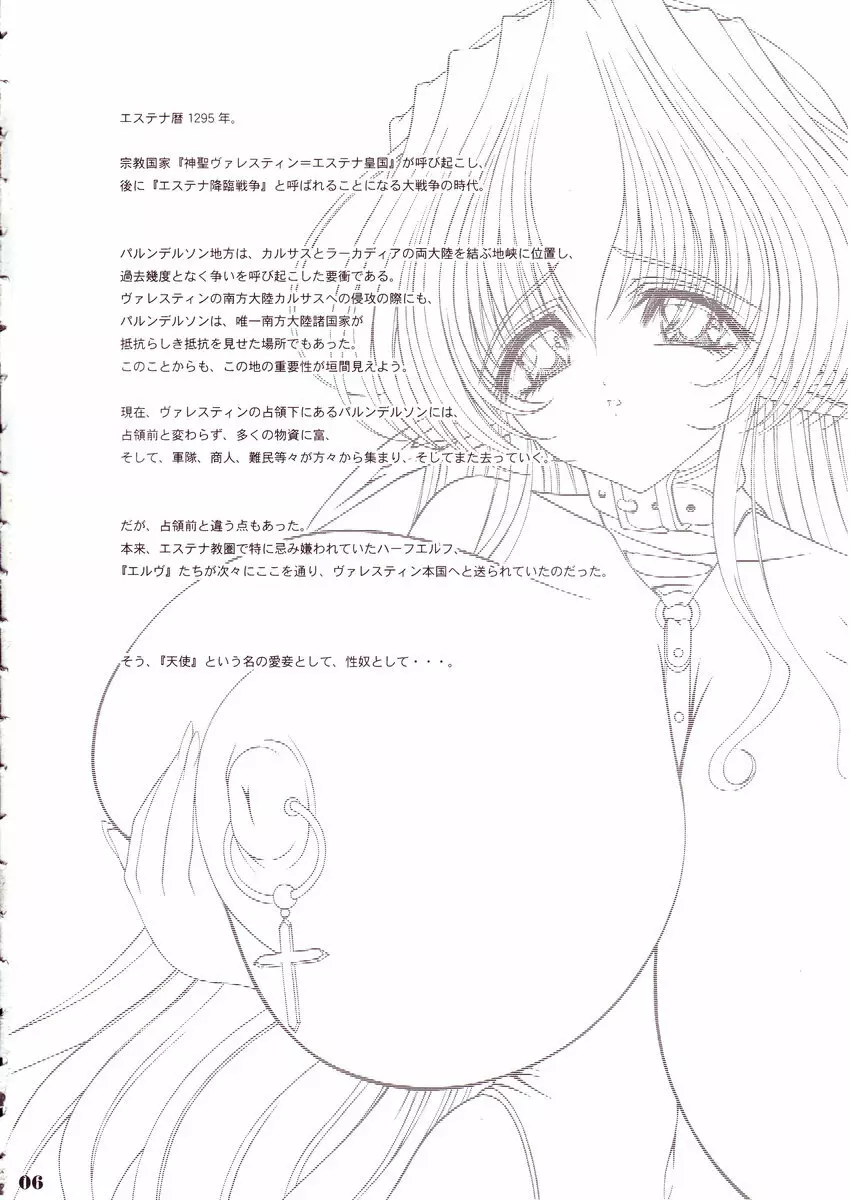 エステナ暦1295年。
宗教国家『神聖ヴァレスティン＝エステナ皇国』が呼び起こし、
後に『エステナ降臨戦争』と呼ばれることになる大戦争の時代。
バルンデルソン地方は、カルサスとラーカディアの両大陸を結ぶ地峡に位置し、
過去幾度となく争いを呼び起こした要衝である。
ヴァレスティンの南方大陸カルサスへの侵攻の際にも、
バルンデルソンは、唯一南方大陸諸国家が
抵抗らしき抵抗を見せた場所でもあった。
このことからも、この地の重要性が垣間見えよう。
現在、ヴァレスティンの占領下にあるバルンデルソンには、
占領前と変わらず、多くの物資に富、
そして、軍隊、商人、難民等々が方々から集まり、そしてまた去っていく。
だが、占領前と違う点もあった。
本来、エステナ教圏で特に忌み嫌われていたハーフエルフ、
『エルヴ』たちが次々にここを通り、ヴァレスティン本国へと送られていたのだった。
そう、『天使』という名の愛妾として、性奴として・・・。
06